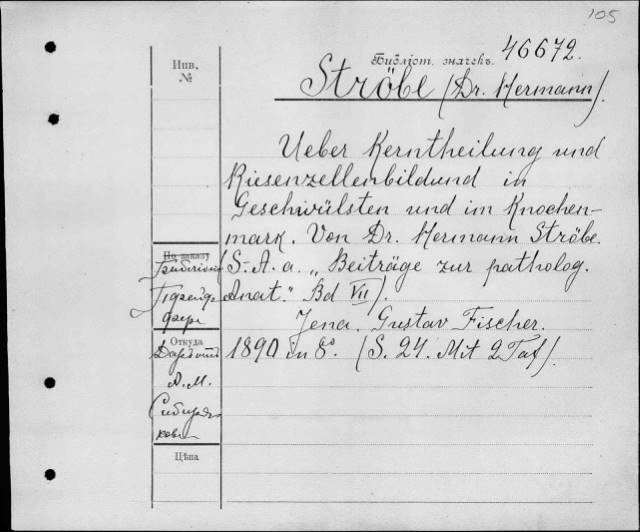 105
Библіот. значекъ. 46672.
Инв.
№
Ströbe (Dr. Hermann).
Ueber Kerntheilung und
Riesenzellenbildund in
Geschwülsten und im Knochen-
mark. Von Dr. Hermann Ströbe.
По заказу
(S. A. a. „Beiträge zur patholog.
Anat." Bd VII).
Jena. Gustav Fischer.
Откуда
1890 in 8°. (S. 24. Mit 2 Taf).
А. М.
Сибиря-
кова
Цѣна